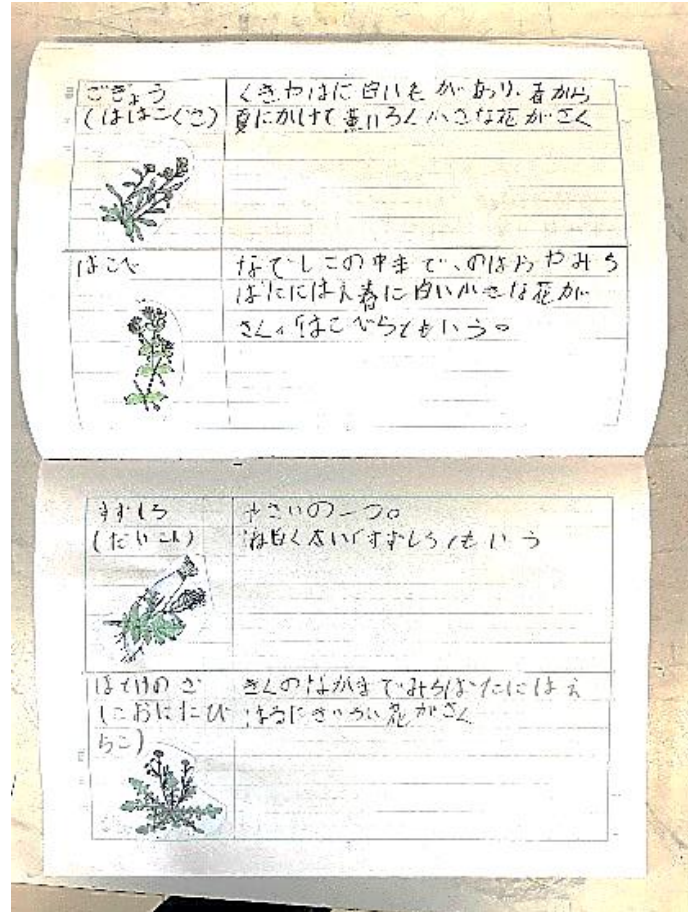 ごぎょう
(ははこぐさ)
くきやはに白い毛があり、春から
夏にかけて黄いろく小さな花がさく
はこべ
なでしこの中まで、のはらやみち
ばたにはえ春に白い小さな花が
さく。「はこべらともいう。
すずしろ
(だいこん)
やさいの一つ。
ね白く太い「すずしろ」ともいう
ほとけのざ
(こおにたび
らこ)
きくのなかまでみちばたにはえ
はるにきいろい花がさく